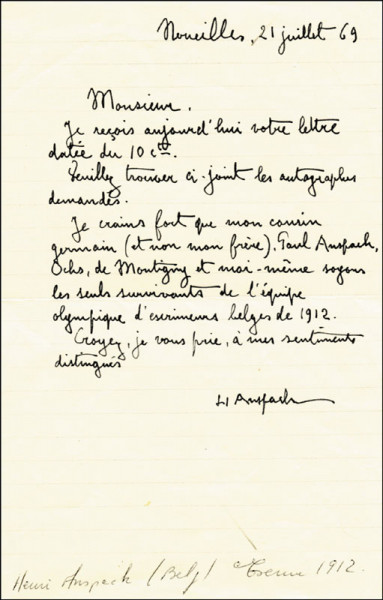 Noueilles, 21 juillet 69
Monsieur.
Je reçois aujourd'hui votre lettre
datée du 10 ct.
Veuillez trouver ci-joint les autographes
demandés.
Je crains fort que mon cousin
germain (et non mon frère), Paul Anspach,
Ochs, de Montigny et moi-même soyons
les seuls survivants de l'équipe
olympique d'escrimeurs belges de 1912.
Croyez, je vous prie, à mes sentiments
distingués
H Anspach
Henri Anspach (Belg) 1912.